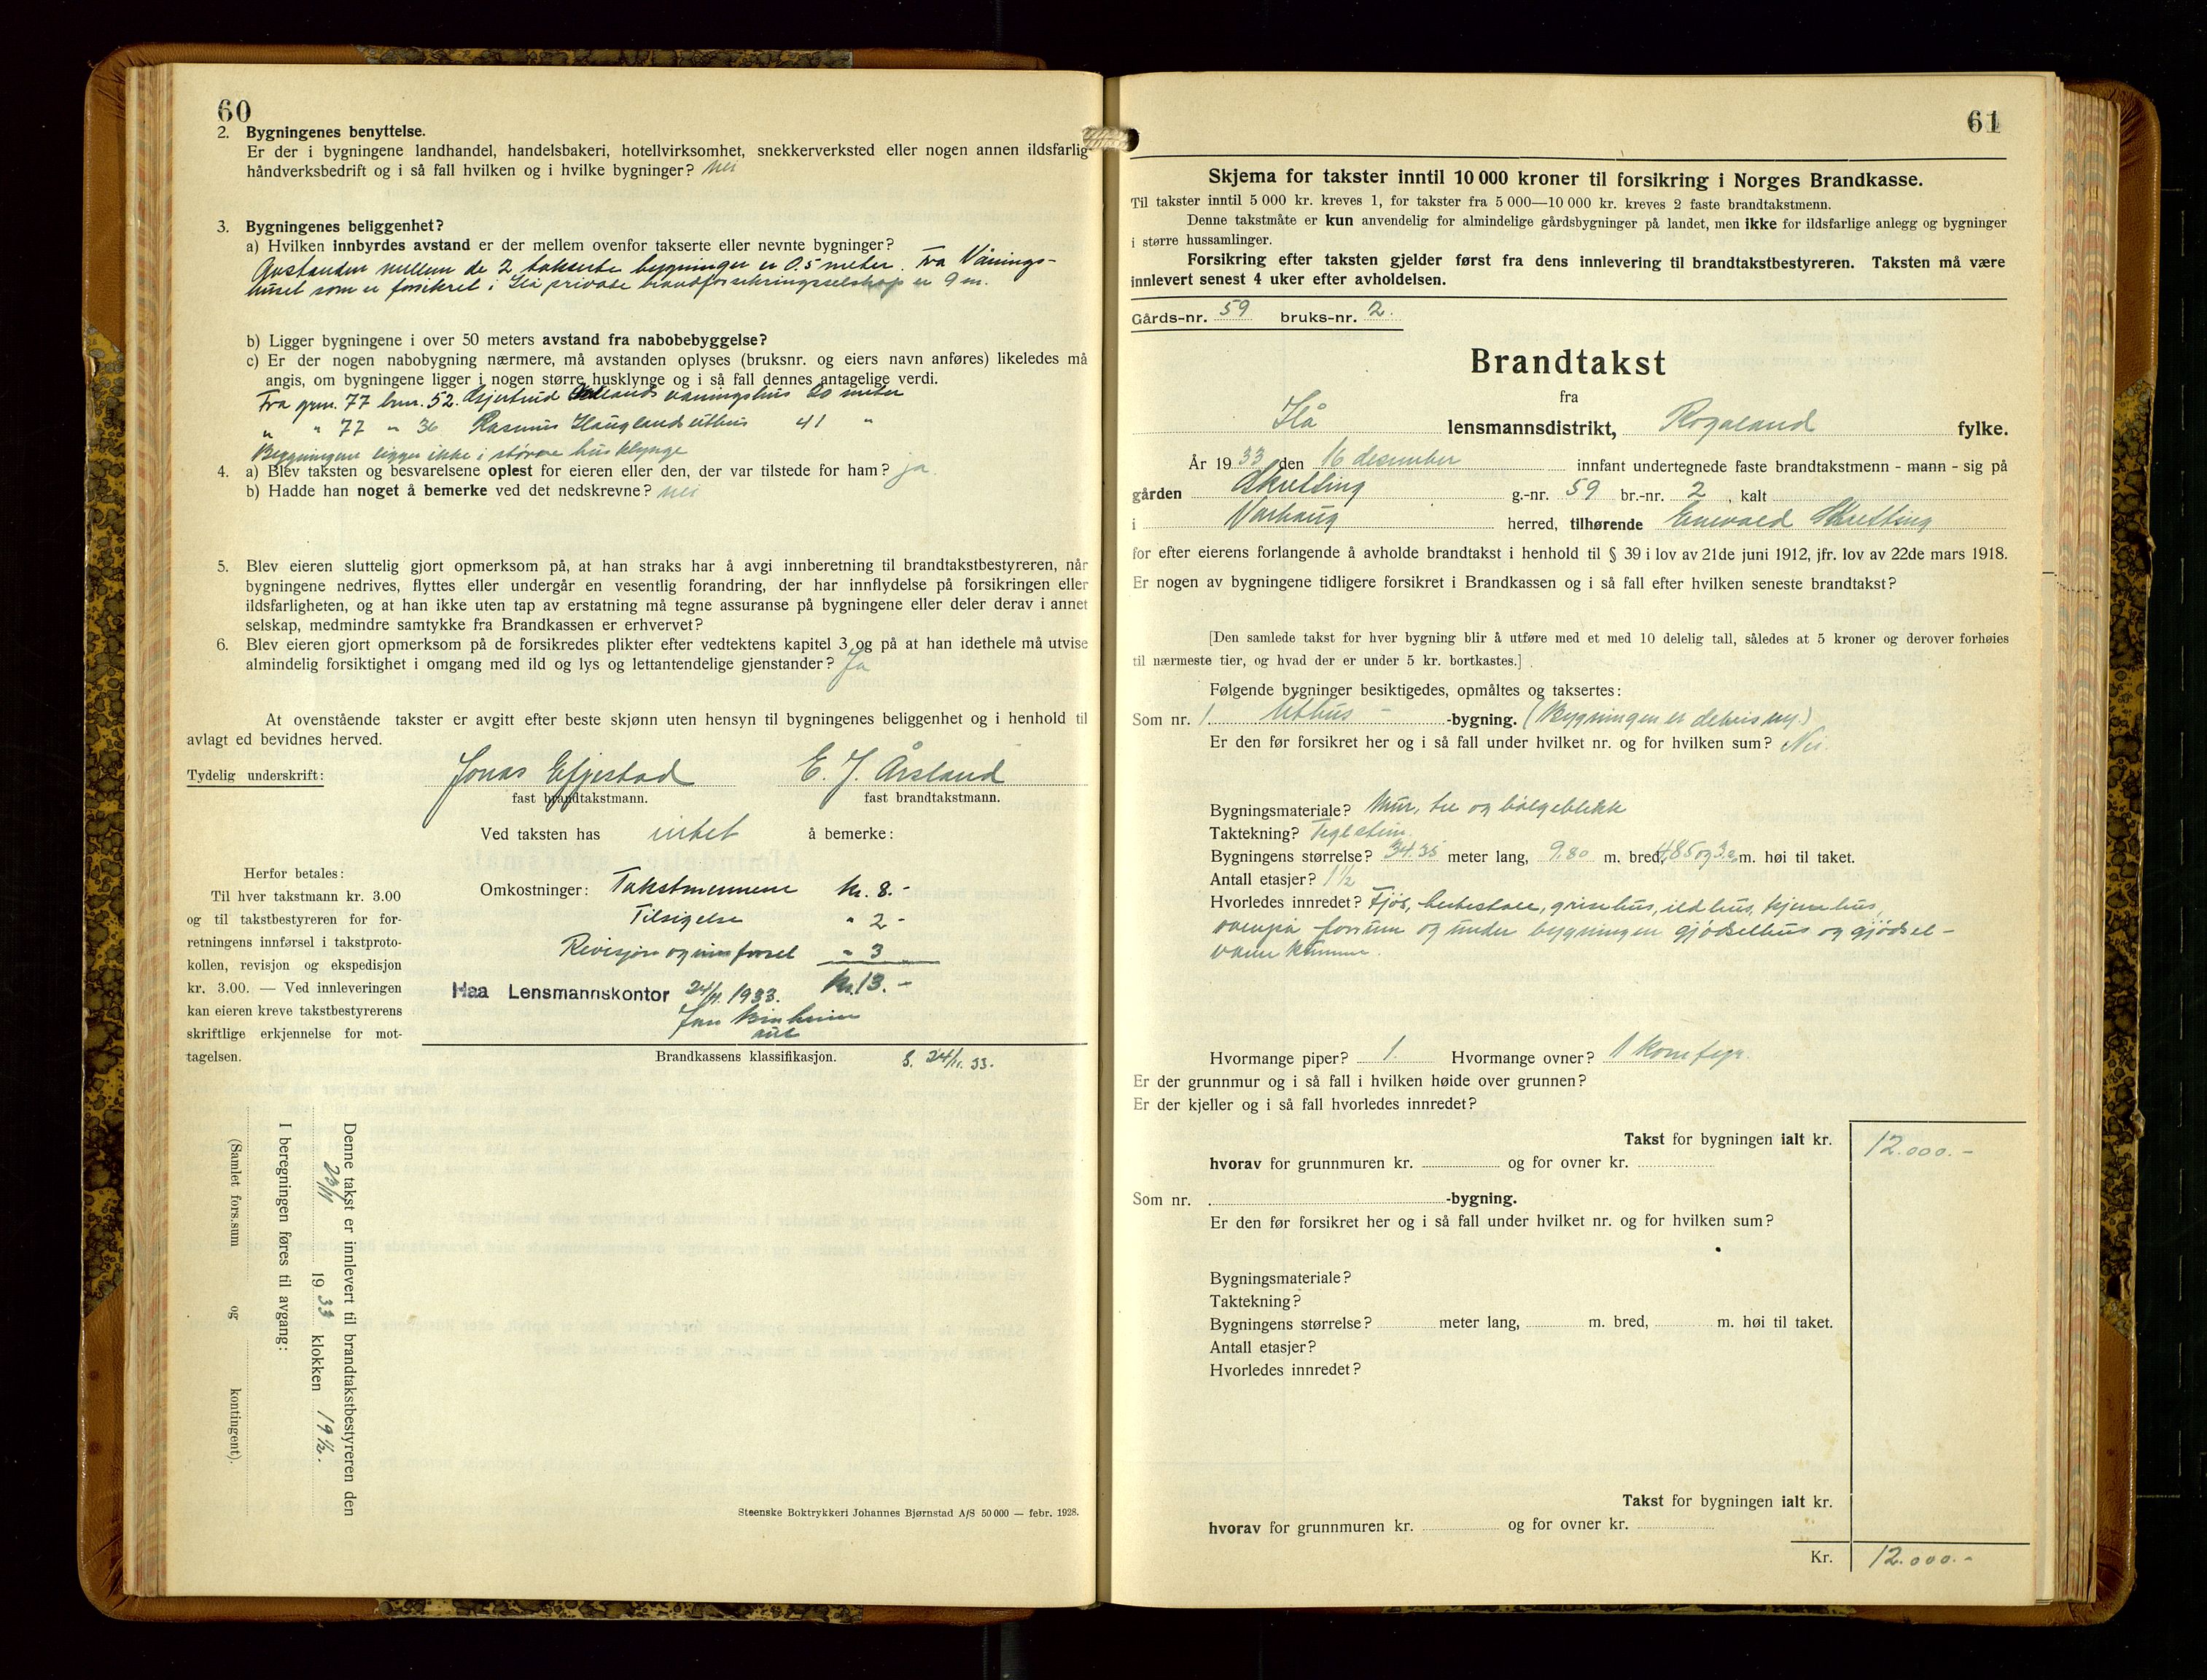 60
2. Bygningenes benyttelse.
Er der i bygningene landhandel, handelsbakeri, hotellvirksomhet, snekkerverksted eller nogen annen ildsfarlig
håndverksbedrift og i så fall hvilken og i hvilke bygninger? Nei
3. Bygningenes beliggenhet?
a) Hvilken innbyrdes avstand er der mellem ovenfor takserte eller nevnte bygninger?
Avstanden mellem de 2 takserte bygninger er 0.5 meter. Fra Vånings-
huset som er forsikret i Hå private brandforsikringsselskap er 9 m.
b) Ligger bygningene i over 50 meters avstand fra nabobebyggelse?
c) Er der nogen nabobygning nærmere, må avstanden oplyses (bruksnr. og eiers navn anføres) likeledes må
angis, om bygningene ligger i nogen større husklynge og i så fall dennes antagelige verdi.
Fra grnr. 77 bnr. 52. våningshus 20 meter
" " 77 " 36 Rasmus Hauglands uthus 41 "
Bygningene ligger ikke i større husklynge
4. a) Blev taksten og besvarelsene oplest for eieren eller den, der var tilstede for ham? ja
b) Hadde han noget å bemerke ved det nedskrevne? nei
5. Blev eieren sluttelig gjort opmerksom på, at han straks har å avgi innberetning til brandtakstbestyreren, når
bygningene nedrives, flyttes eller undergår en vesentlig forandring, der har innflydelse på forsikringen eller
ildsfarligheten, og at han ikke uten tap av erstatning må tegne assuranse på bygningene eller deler derav i annet
selskap, medmindre samtykke fra Brandkassen er erhvervet?
6. Blev eieren gjort opmerksom på de forsikredes plikter efter vedtektens kapitel 3 og på at han idethele må utvise
almindelig forsiktighet i omgang med ild og lys og lettantendelige gjenstander? Ja
At ovenstående takster er avgitt efter beste skjønn uten hensyn til bygningenes beliggenhet og i henhold til
avlagt ed bevidnes herved.
Tydelig underskrift: Jonas Efjestad E. J. Årsland
fast brandtakstmann. fast brandtakstmann.
Ved taksten has intet å bemerke:
Herfor betales:
Til hver takstmann kr. 3.00
og til takstbestyreren for for-
retningens innførsel i takstproto-
kollen, revisjon og ekspedisjon
kr. 3.00. — Ved innleveringen
kan eieren kreve takstbestyrerens
skriftlige erkjennelse for mot-
tagelsen.
Omkostninger: Takstmennene kr. 8.-
Tilsigelse " 2-
Revisjon og innførsel " 3
kr. 13.-
Haa Lensmannskontor 24/11. 1933.
Brandkassens klassifikasjon. S. 24/11. 33.
Denne takst er innlevert til brandtakstbestyreren den
23/11 1933 klokken 19½.
I beregningen føres til avgang:
(Samlet fors.sum og kontingent).
Steenske Boktrykkeri Johannes Bjørnstad A/S 50 000 — febr. 1928.
61
Skjema for takster inntil 10 000 kroner til forsikring i Norges Brandkasse.
Til takster inntil 5 000 kr. kreves 1, for takster fra 5 000—10 000 kr. kreves 2 faste brandtakstmenn.
Denne takstmåte er kun anvendelig for almindelige gårdsbygninger på landet, men ikke for ildsfarlige anlegg og bygninger
i større hussamlinger.
Forsikring efter taksten gjelder først fra dens innlevering til brandtakstbestyreren. Taksten må være
innlevert senest 4 uker efter avholdelsen.
Gårds-nr. 59 bruks-nr. 2.
Brandtakst
fra
Hå lensmannsdistrikt, Rogaland fylke.
År 1933 den 16 desember innfant undertegnede faste brandtakstmenn - mann - sig på
gården Skretting g.-nr. 59 br.-nr. 2, kalt
i Varhaug herred, tilhørende Enevald Skretting
for efter eierens forlangende å avholde brandtakst i henhold til § 39 i lov av 21de juni 1912, jfr. lov av 22de mars 1918.
Er nogen av bygningene tidligere forsikret i Brandkassen og i så fall efter hvilken seneste brandtakst?
[Den samlede takst for hver bygning blir å utføre med et med 10 delelig tall, således at 5 kroner og derover forhøies
til nærmeste tier, og hvad der er under 5 kr. bortkastes.]
Følgende bygninger besiktigedes, opmåltes og taksertes:
Som nr. 1. Uthus - -bygning. (Bygningen er delvis ny.)
Er den før forsikret her og i så fall under hvilket nr. og for hvilken sum? Nei.
Bygningsmateriale? Mur, tre og bølgeblikk
Taktekning? Teglstein.
Bygningens størrelse? 34.35 meter lang, 9.80 m. bred, 4,85 og 3. m. høi til taket.
Antall etasjer? 1½
Hvorledes innredet? Fjøs, hestestall, grisehus, ildhus, kjernehus,
ovenpå forrum og under bygningen gjødselhus og gjødsel-
vann kumme.
Hvormange piper? 1. Hvormange ovner? 1 komfyr.
Er der grunnmur og i så fall i hvilken høide over grunnen?
Er der kjeller og i så fall hvorledes innredet?
Takst for bygningen ialt kr. 12.000.-
hvorav for grunnmuren kr. og for ovner kr.
Som nr. -bygning.
Er den før forsikret her og i så fall under hvilket nr. og for hvilken sum?
Bygningsmateriale?
Taktekning?
Bygningens størrelse? meter lang, m. bred, m. høi til taket.
Antall etasjer?
Hvorledes innredet?
Takst for bygningen ialt kr.
hvorav for grunnmuren kr. og for ovner kr.
Kr. 12.000.-